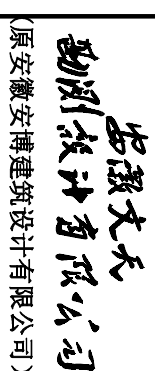 安徽文天
勘测设计有限公司
(原安徽安博建筑设计有限公司)